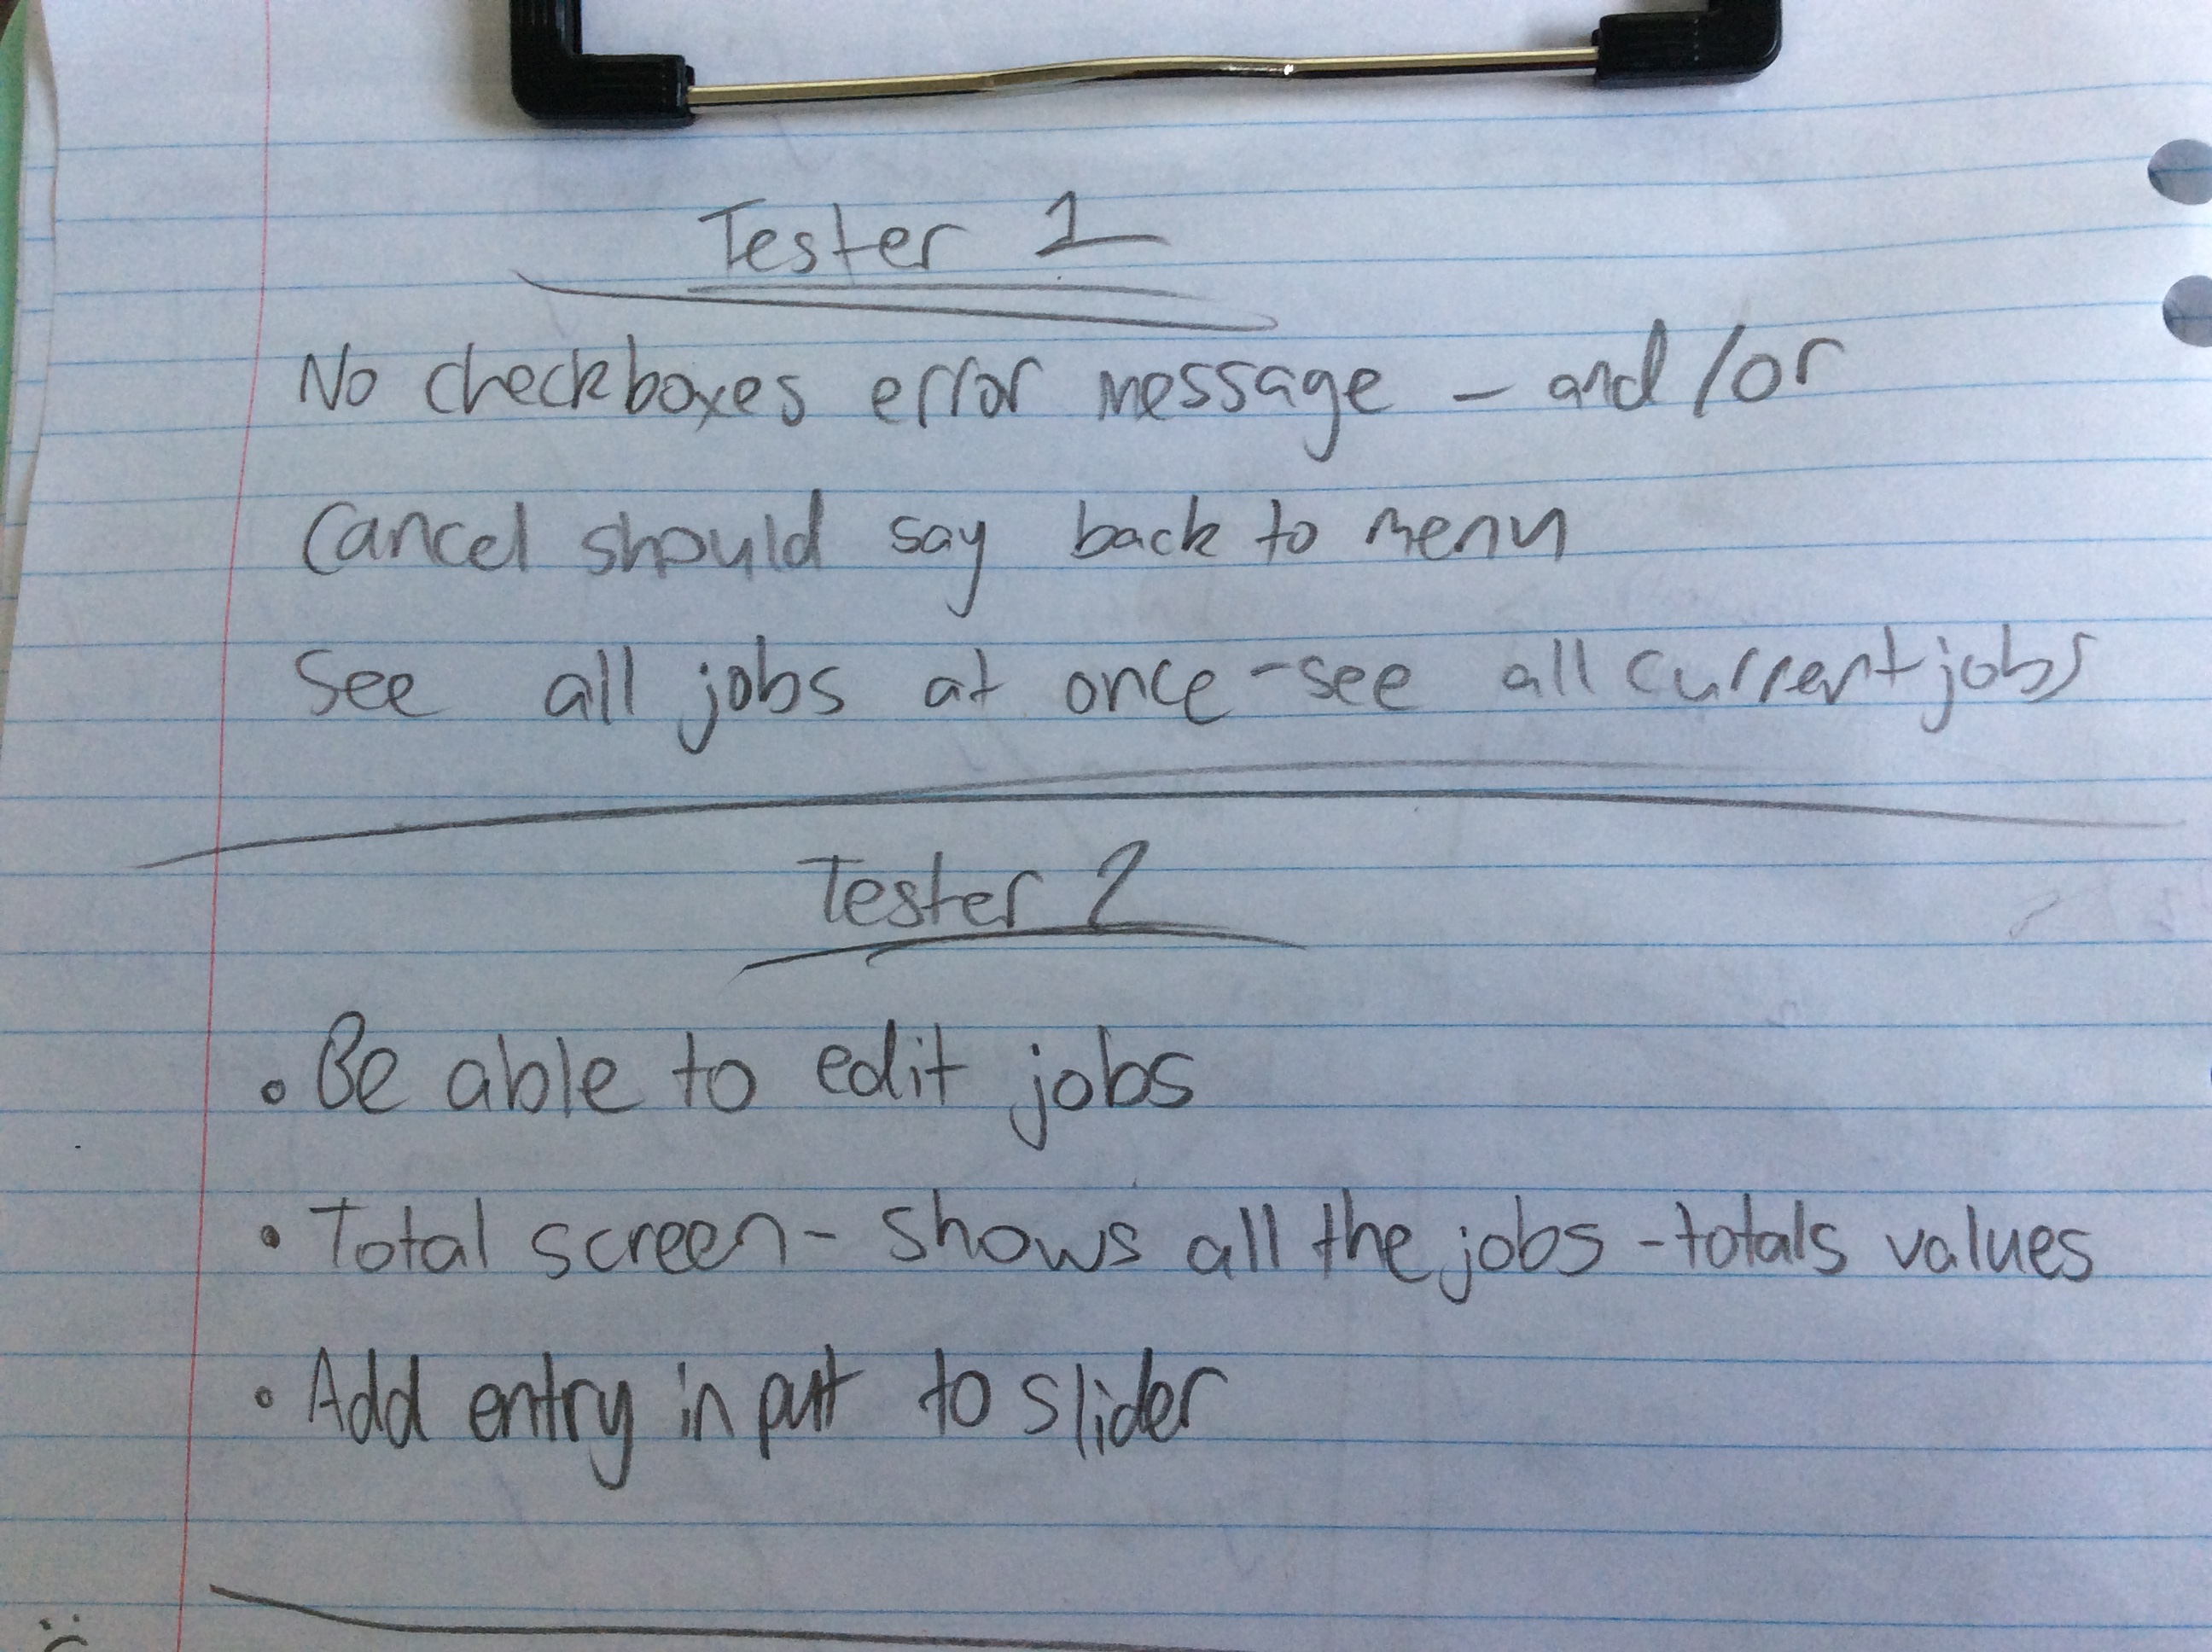 Tester 1
No checkboxes error message - and/or
Cancel should say back to menu
See all jobs at once - see all current jobs
Tester 2
• Be able to edit jobs
• Total screen - shows all the jobs - totals values
• Add entry input to slider